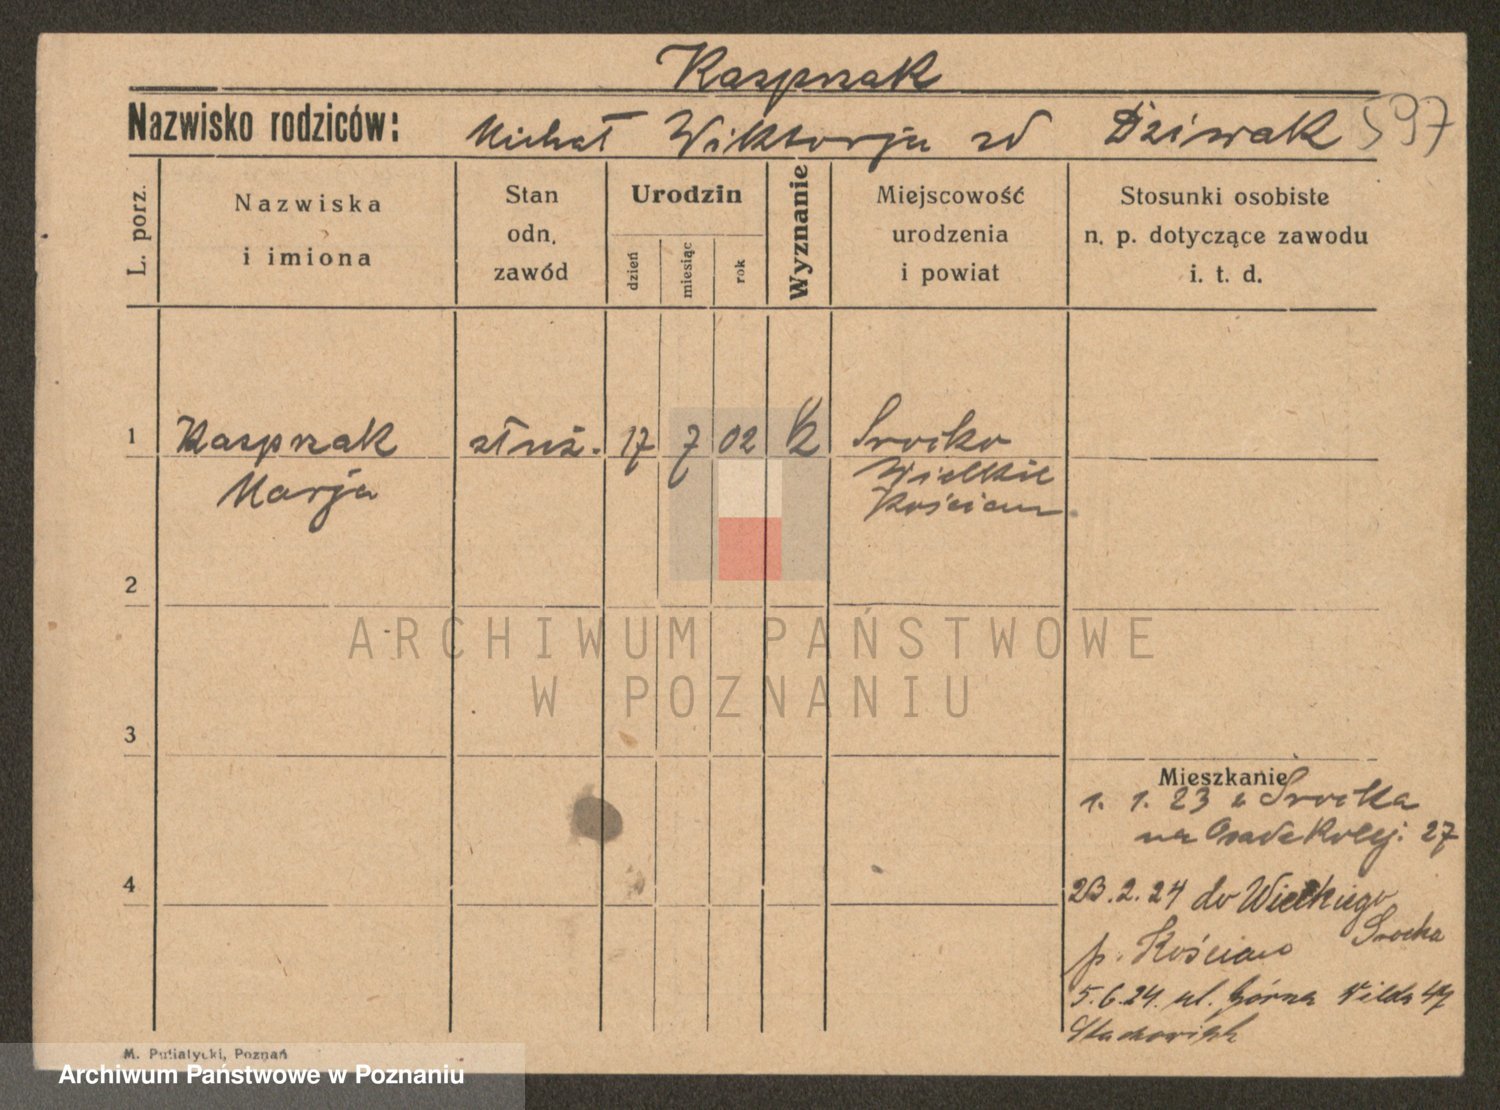 Kasprzak
Nazwisko rodziców: Michał Wiktorja zd Dziwak 597
L. porz.
Nazwiska
i imiona
Stan
odn.
zawód
Urodzin
dzień
miesiąc
rok
Wyznanie
Miejscowość
urodzenia
i powiat
Stosunki osobiste
n. p. dotyczące zawodu
i. t. d.
1 Kasprzak służ. 17 7 02 k Srocko
Marja
Wielkie
Kościan
2
3
4
ARCHIWUM PAŃSTWOWE
W POZNANIU
Mieszkanie
1. 1. 23 z Srocka
na Osade Kolej. 27
23.2.24 do Wielkiego
Srocka
p. Kościan
5.6.24. ul. Górna Wilda 47
M. Putiatycki, Poznań
Archiwum Państwowe w Poznaniu